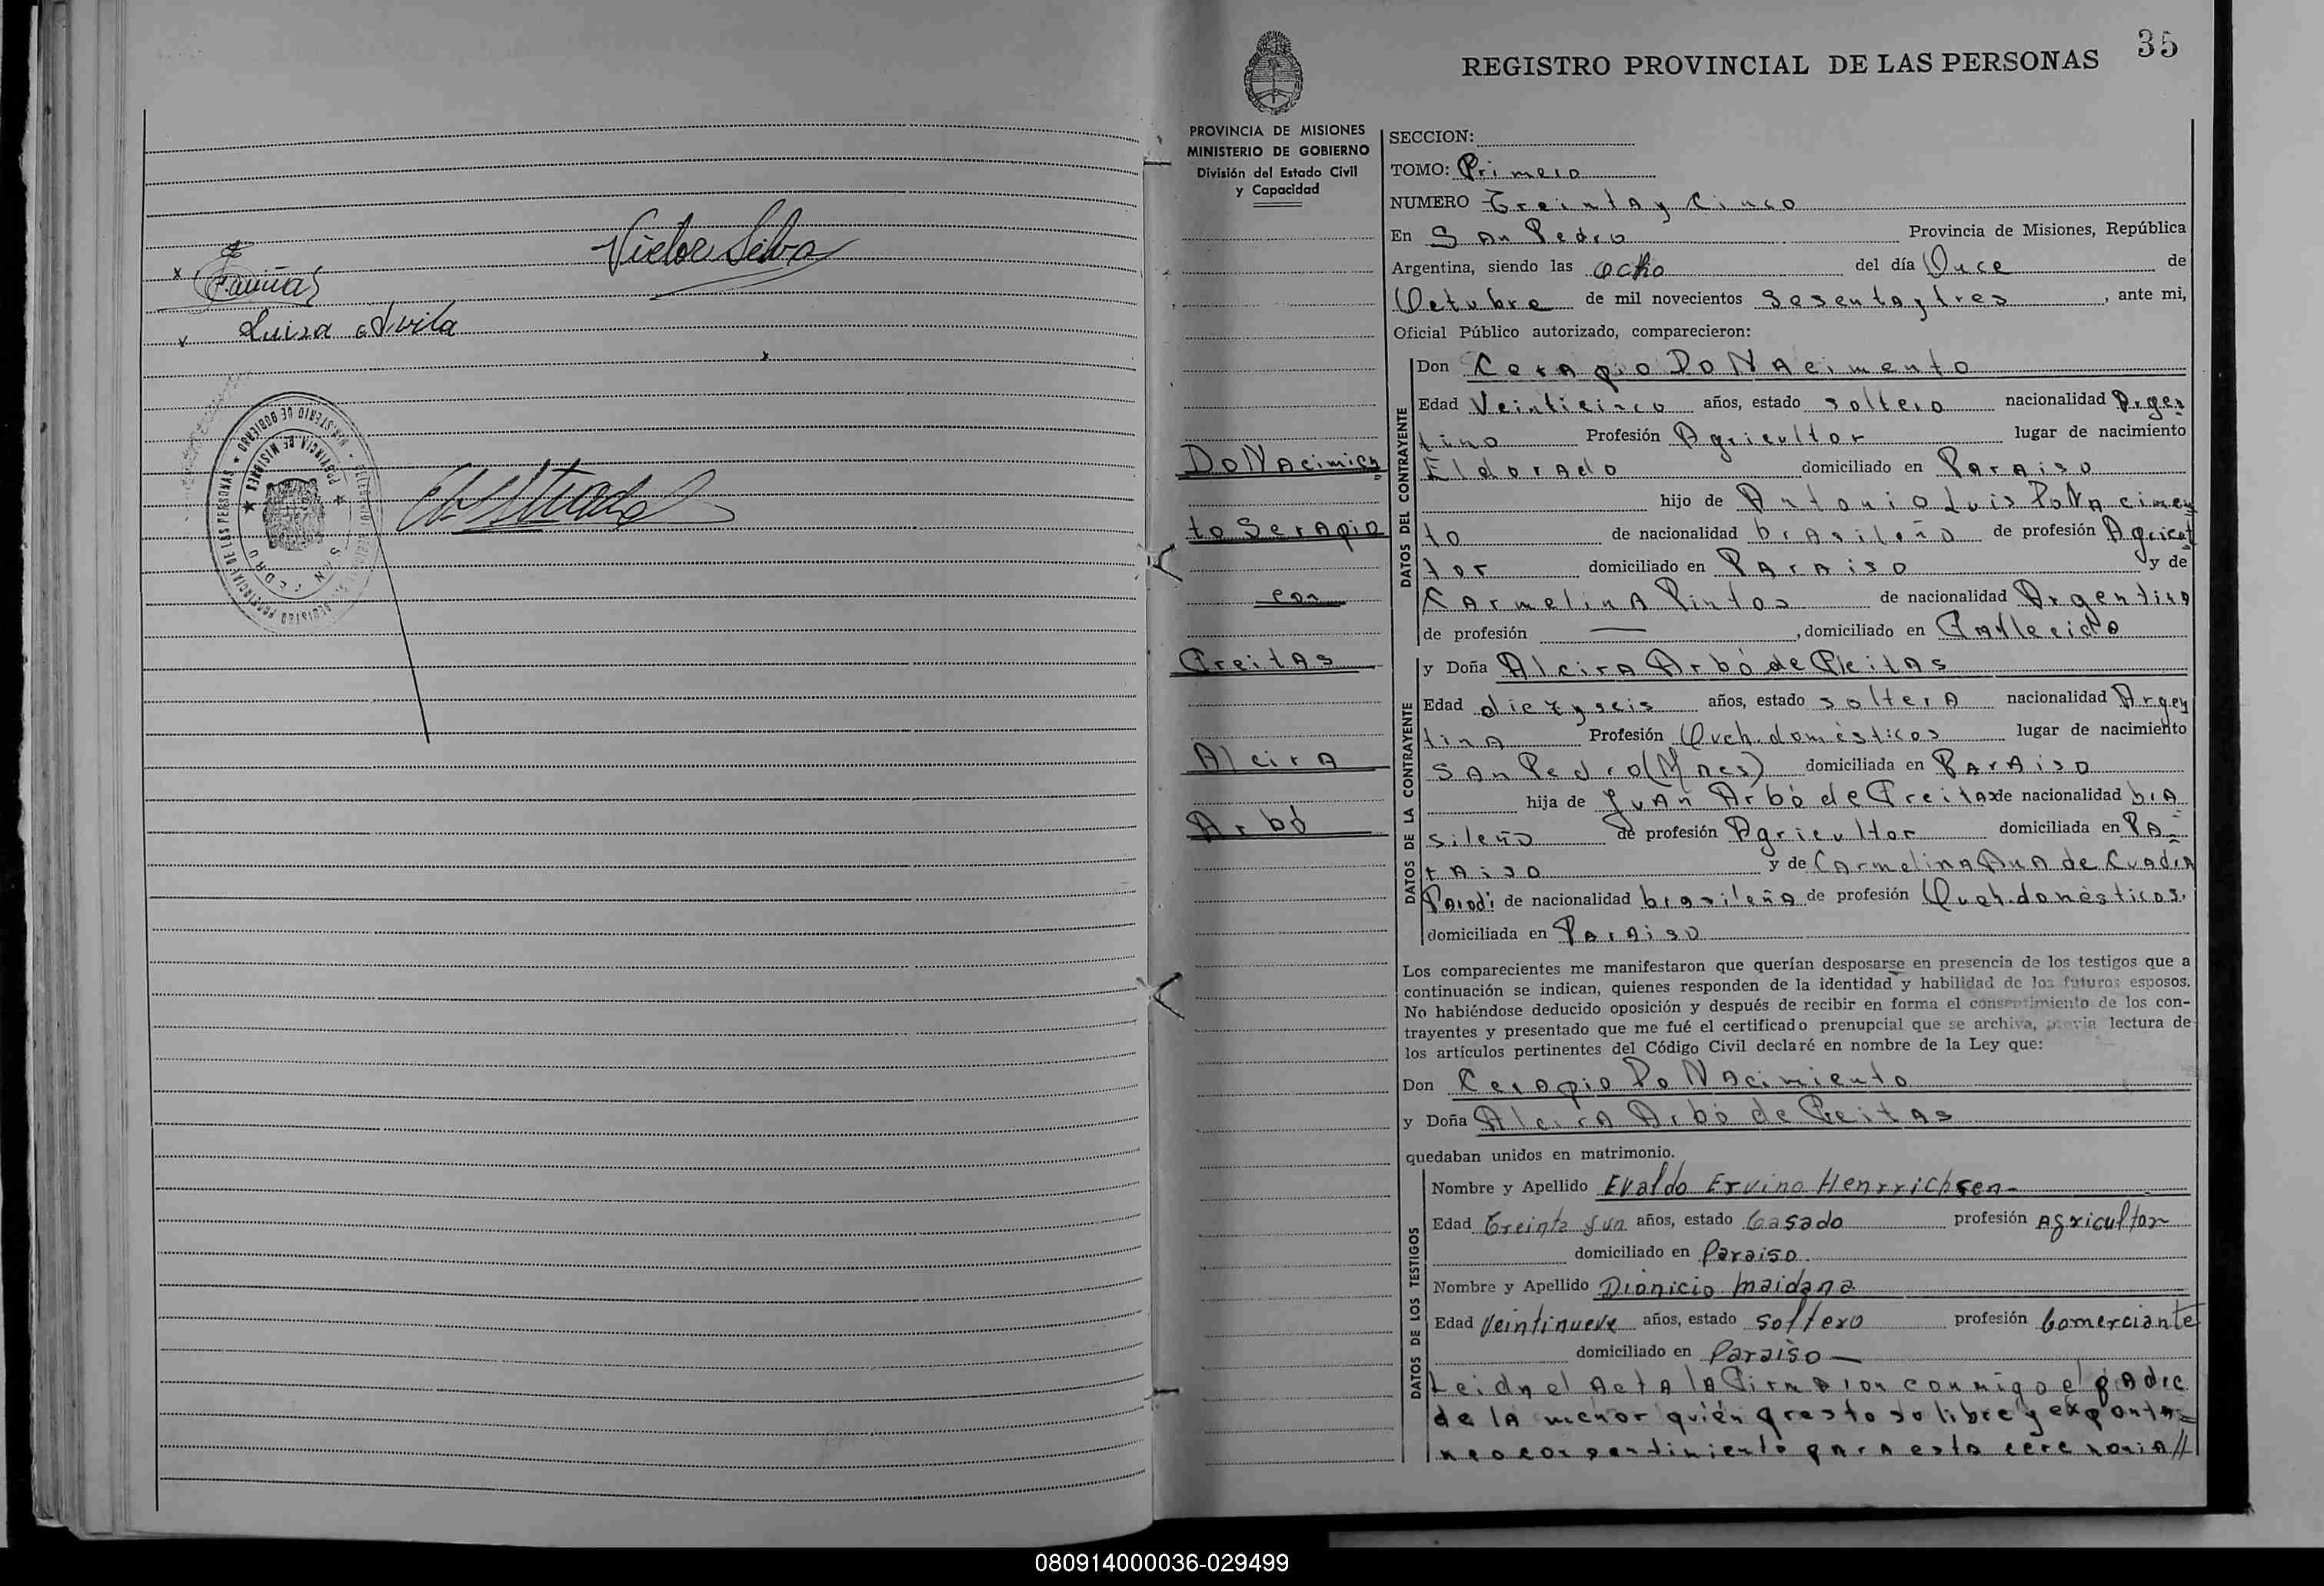 Victor Silva
x Fariñas
x Luisa Avila
x
MINISTERIO DE GOBIERNO
PROVINCIA DE MISIONES
SAN PEDRO
35
REGISTRO PROVINCIAL DE LAS PERSONAS
PROVINCIA DE MISIONES
MINISTERIO DE GOBIERNO
División del Estado Civil
y Capacidad
Do Nacimien
to Serapio
con
Freitas
Alcira
Arbó
SECCION:
TOMO: Primero
NUMERO Treinta y Cinco
En San Pedro Provincia de Misiones, República
Argentina, siendo las ocho del día Once de
Octubre de mil novecientos Sesenta y tres, ante mi,
Oficial Público autorizado, comparecieron:
DATOS DEL CONTRAYENTE
Don Cerapio Do Nacimento
Edad Veinticinco años, estado soltero nacionalidad Argen
tino Profesión Agricultor lugar de nacimiento
Eldorado domiciliado en Paraiso
hijo de Antonio Luis Do Nacimen
to de nacionalidad brasileño de profesión Agricul
tor domiciliado en Paraiso y de
Carmelina Pintos de nacionalidad Argentina
de profesión —, domiciliado en Fallecida
DATOS DE LA CONTRAYENTE
y Doña Alcira Arbó de Freitas
Edad diez y seis años, estado soltera nacionalidad Argen
tina Profesión Queh. domésticos lugar de nacimiento
San Pedro (Mnes) domiciliada en Paraiso
hija de Juan Arbó de Freitas de nacionalidad bra
sileño de profesión Agricultor domiciliada en Pa-
raiso y de Carmelina Ana de Cuadra
Parodi de nacionalidad brasileña de profesión Queh. domésticos.
domiciliada en Paraiso
Los comparecientes me manifestaron que querían desposarse en presencia de los testigos que a
continuación se indican, quienes responden de la identidad y habilidad de los futuros esposos.
No habiéndose deducido oposición y después de recibir en forma el consentimiento de los con-
trayentes y presentado que me fué el certificado prenupcial que se archiva, previa lectura de
los artículos pertinentes del Código Civil declaré en nombre de la Ley que:
Don Cerapio Do Nacimiento
y Doña Alcira Arbó de Freitas
quedaban unidos en matrimonio.
DATOS DE LOS TESTIGOS
Nombre y Apellido Evaldo Ervino Henrrichsen-
Edad Treinta y un años, estado Casado profesión Agricultor
domiciliado en Paraiso
Nombre y Apellido Dionicio Maidana
Edad Veintinueve años, estado Soltero profesión Comerciante
domiciliado en Paraiso —
Leida el Acta la Firmaron conmigo el padre
de la menor quién presto su libre y exponta=
neo consentimiento para esta ceremonia//
080914000036-029499